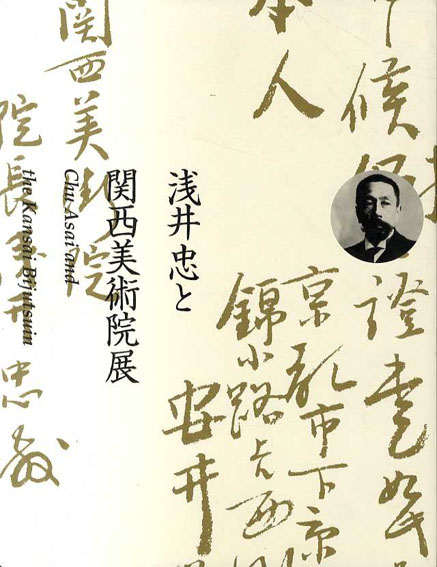 本人
京都市下京
錦小路
安井
浅井忠と
関西美術院展
Chu Asai and
the Kansai Bijutsuin
関西美術院
院長浅井忠